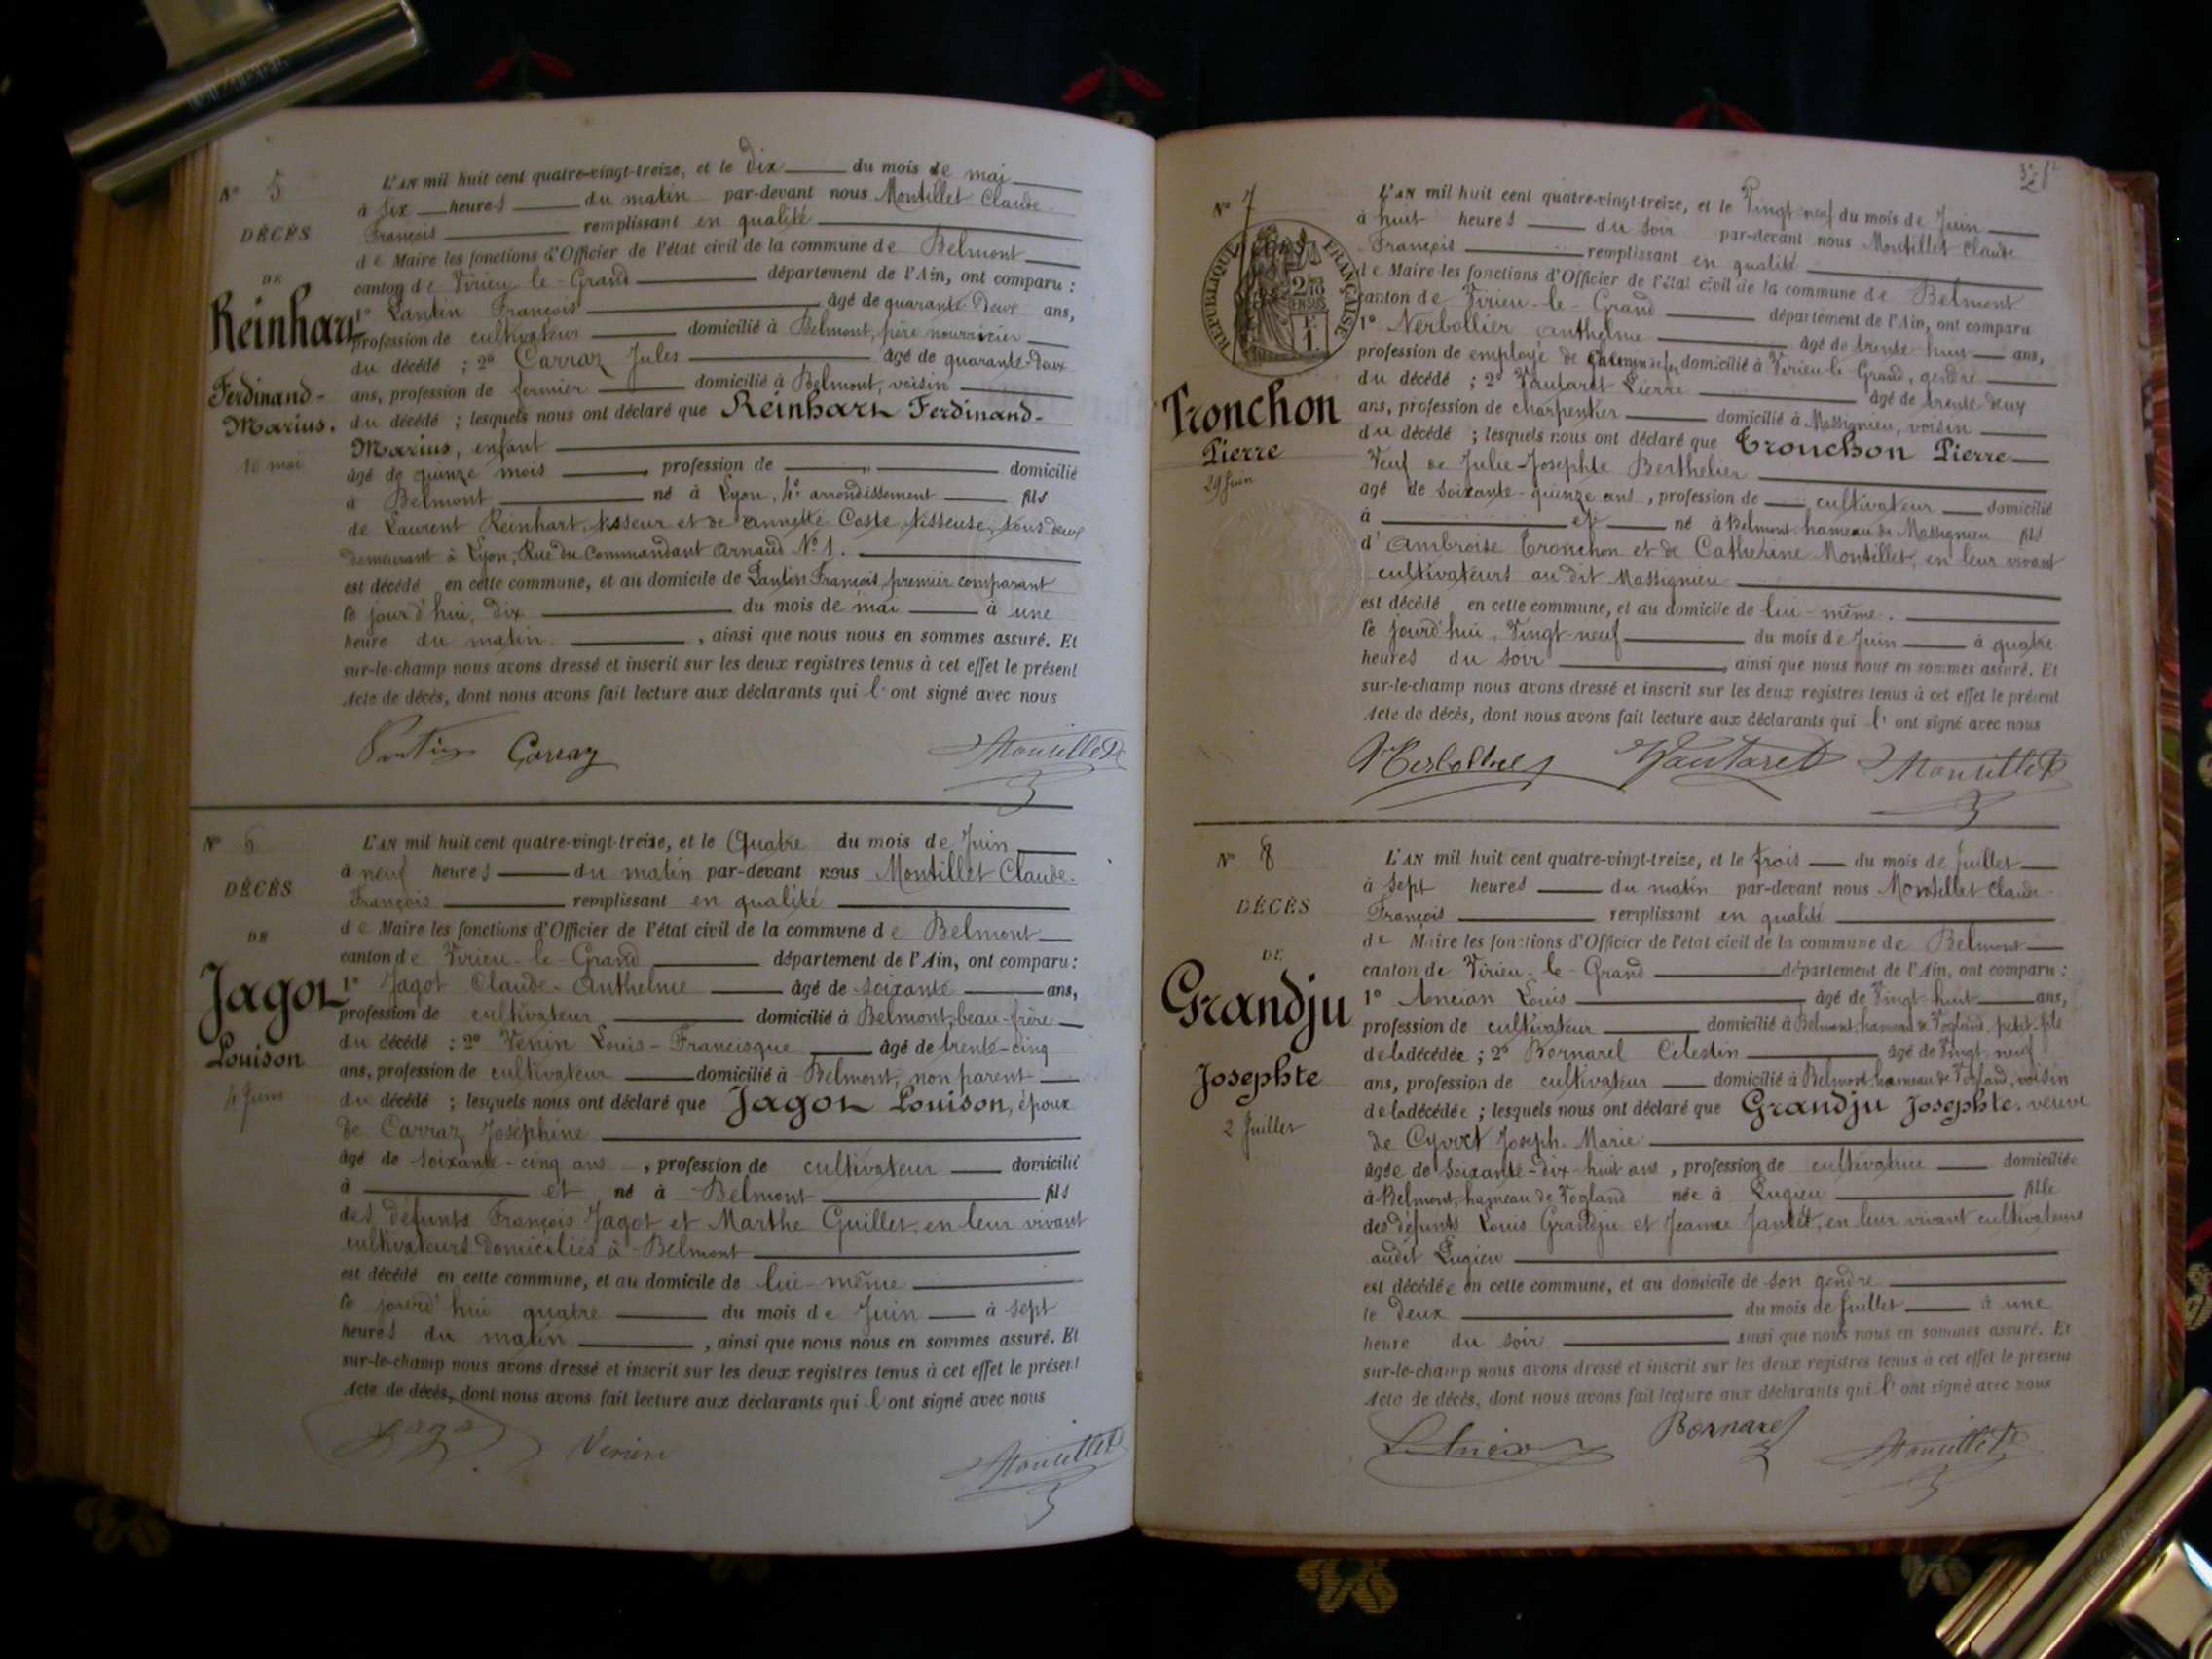 N° 5
DÉCÈS
DE
Reinhart
Ferdinand-
Marius.
10 mai
L'AN mil huit cent quatre-vingt-treize, et le Dix du mois de mai
à six heures du matin par-devant nous Montillet Claude-
François remplissant en qualité
de Maire les fonctions d'Officier de l'état civil de la commune de Belmont
canton de Virieu-le-Grand département de l'Ain, ont comparu :
1° Lantin François âgé de quarante-deux ans,
profession de cultivateur domicilié à Belmont, père nourricier
du décédé ; 2° Carraz Jules âgé de quarante-deux
ans, profession de fermier domicilié à Belmont, voisin
du décédé ; lesquels nous ont déclaré que Reinhart Ferdinand-
Marius, enfant
âgé de quinze mois, profession de domicilié
à Belmont né à Lyon, 4e arrondissement fils
de Laurent Reinhart, tisseur et de annette Coste, tisseuse, tous deux
demeurant à Lyon, Rue du Commandant Arnaud N° 1.
est décédé en cette commune, et au domicile de Lantin François, premier comparant
le jourd'hui, dix du mois de mai à une
heure du matin, ainsi que nous nous en sommes assuré. Et
sur-le-champ nous avons dressé et inscrit sur les deux registres tenus à cet effet le présent
Acte de décès, dont nous avons fait lecture aux déclarants qui l'ont signé avec nous
Lantin Carraz Montillet
N° 6
DÉCÈS
DE
Jagot
Louison
4 Juin
L'AN mil huit cent quatre-vingt-treize, et le Quatre du mois de Juin
à neuf heures du matin par-devant nous Montillet Claude-
François remplissant en qualité
de Maire les fonctions d'Officier de l'état civil de la commune de Belmont
canton de Virieu-le-Grand département de l'Ain, ont comparu :
1° Jagot Claude-Anthelme âgé de soixante ans,
profession de cultivateur domicilié à Belmont, beau-frère
du décédé ; 2° Venin Louis-Francisque âgé de trente-cinq
ans, profession de cultivateur domicilié à Belmont, non parent
du décédé ; lesquels nous ont déclaré que Jagot Louison, époux
de Carraz Joséphine
âgé de soixante-cinq ans, profession de cultivateur domicilié
à et né à Belmont fils
des défunts François Jagot et Marthe Guillet, en leur vivant
cultivateurs domiciliés à Belmont
est décédé en cette commune, et au domicile de lui-même
le jourd'hui quatre du mois de Juin à sept
heures du matin, ainsi que nous nous en sommes assuré. Et
sur-le-champ nous avons dressé et inscrit sur les deux registres tenus à cet effet le présent
Acte de décès, dont nous avons fait lecture aux déclarants qui l'ont signé avec nous
Jagot Venin Montillet
N° 7
RÉPUBLIQUE FRANÇAISE
2/10 EN SUS
1 F.
Tronchon
Pierre
29 Juin
L'AN mil huit cent quatre-vingt-treize, et le Vingt-neuf du mois de Juin
à huit heures du soir par-devant nous Montillet Claude
François remplissant en qualité
de Maire les fonctions d'Officier de l'état civil de la commune de Belmont
canton de Virieu-le-Grand département de l'Ain, ont comparu
1° Nerbollier Anthelme âgé de trente-huit ans,
profession de employé de chemin de fer domicilié à Virieu-le-Grand, gendre
du décédé ; 2° Vautaret Pierre âgé de trente-deux
ans, profession de charpentier domicilié à Massignieu, voisin
du décédé ; lesquels nous ont déclaré que Tronchon Pierre
Veuf de Julie-Josephte Berthelier
âgé de soixante-quinze ans, profession de cultivateur domicilié
à et né à Belmont, hameau de Massignieu fils
d'Ambroise Tronchon et de Catherine Montillet, en leur vivant
cultivateurs au dit Massignieu
est décédé en cette commune, et au domicile de lui-même.
le jourd'hui, Vingt-neuf du mois de Juin à quatre
heures du soir, ainsi que nous nous en sommes assuré. Et
sur-le-champ nous avons dressé et inscrit sur les deux registres tenus à cet effet le présent
Acte de décès, dont nous avons fait lecture aux déclarants qui l'ont signé avec nous
Nerbollier Vautaret Montillet
N° 8
DÉCÈS
DE
Grandju
Josephte
2 Juillet
L'AN mil huit cent quatre-vingt-treize, et le trois du mois de Juillet
à sept heures du matin par-devant nous Montillet Claude-
François remplissant en qualité
de Maire les fonctions d'Officier de l'état civil de la commune de Belmont
canton de Virieu-le-Grand département de l'Ain, ont comparu :
1° Ancian Louis âgé de Vingt-huit ans,
profession de cultivateur domicilié à Belmont hameau de Vogland, petit-fils
de la décédée ; 2° Bornarel Célestin âgé de Vingt-neuf
ans, profession de cultivateur domicilié à Belmont hameau de Vogland, voisin
de la décédée ; lesquels nous ont déclaré que Grandju Josephte, veuve
de Cyvoct Joseph-Marie
âgée de soixante-dix-huit ans, profession de cultivatrice domiciliée
à Belmont, hameau de Vogland née à Lugieu fille
des défunts Louis Grandju et Jeanne Jantet, en leur vivant cultivateurs
audit Lugieu
est décédée en cette commune, et au domicile de son gendre
le deux du mois de Juillet à une
heure du soir ainsi que nous nous en sommes assuré. Et
sur-le-champ nous avons dressé et inscrit sur les deux registres tenus à cet effet le présent
Acte de décès, dont nous avons fait lecture aux déclarants qui l'ont signé avec nous
Bornarel Montillet